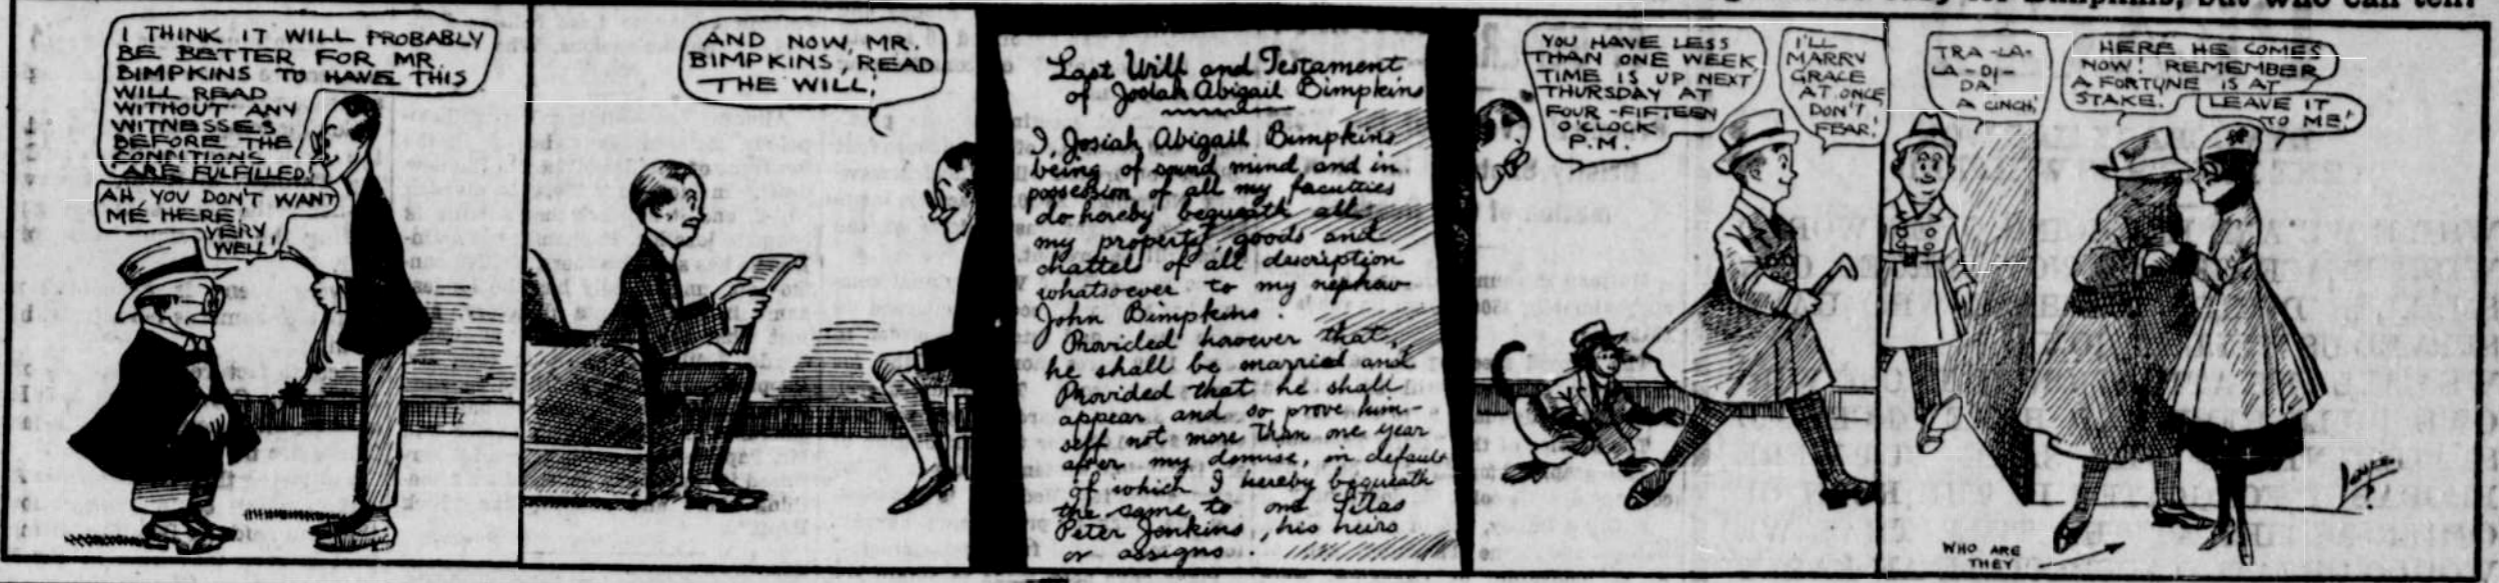 for Bimpkins, but who can tell?
I THINK IT WILL PROBABLY
BE BETTER FOR MR.
BIMPKINS TO HAVE THIS
WILL READ
WITHOUT ANY
WITNESSES
BEFORE THE
CONNITIONS
ARE FULFILLED.
AH, YOU DON'T WANT
ME HERE.
VERY
WELL!
AND NOW, MR.
BIMPKINS, READ
THE WILL!
Last Will and Testament
of Josiah Abigail Bimpkins
I, Josiah Abigail Bimpkins
being of sound mind and in
possession of all my faculties
do hereby bequeath all
my property, goods and
chattel of all description
whatsoever to my nephew
John Bimpkins.
Provided however that,
he shall be married and
Provided that he shall
appear and so prove him-
self not more than one year
after my demise, in default
of which I hereby bequeath
the same to one Silas
Peter Jenkins, his heirs
or assigns.
YOU HAVE LESS
THAN ONE WEEK
TIME IS UP NEXT
THURSDAY AT
FOUR-FIFTEEN
O'CLOCK
P.M.
I'LL
MARRY
GRACE
AT ONCE
DON'T
FEAR!
TRA-LA-
LA-DI-
DA!
A CINCH!
HERE HE COMES
NOW! REMEMBER
A FORTUNE IS AT
STAKE.
LEAVE IT
TO ME!
WHO ARE
THEY